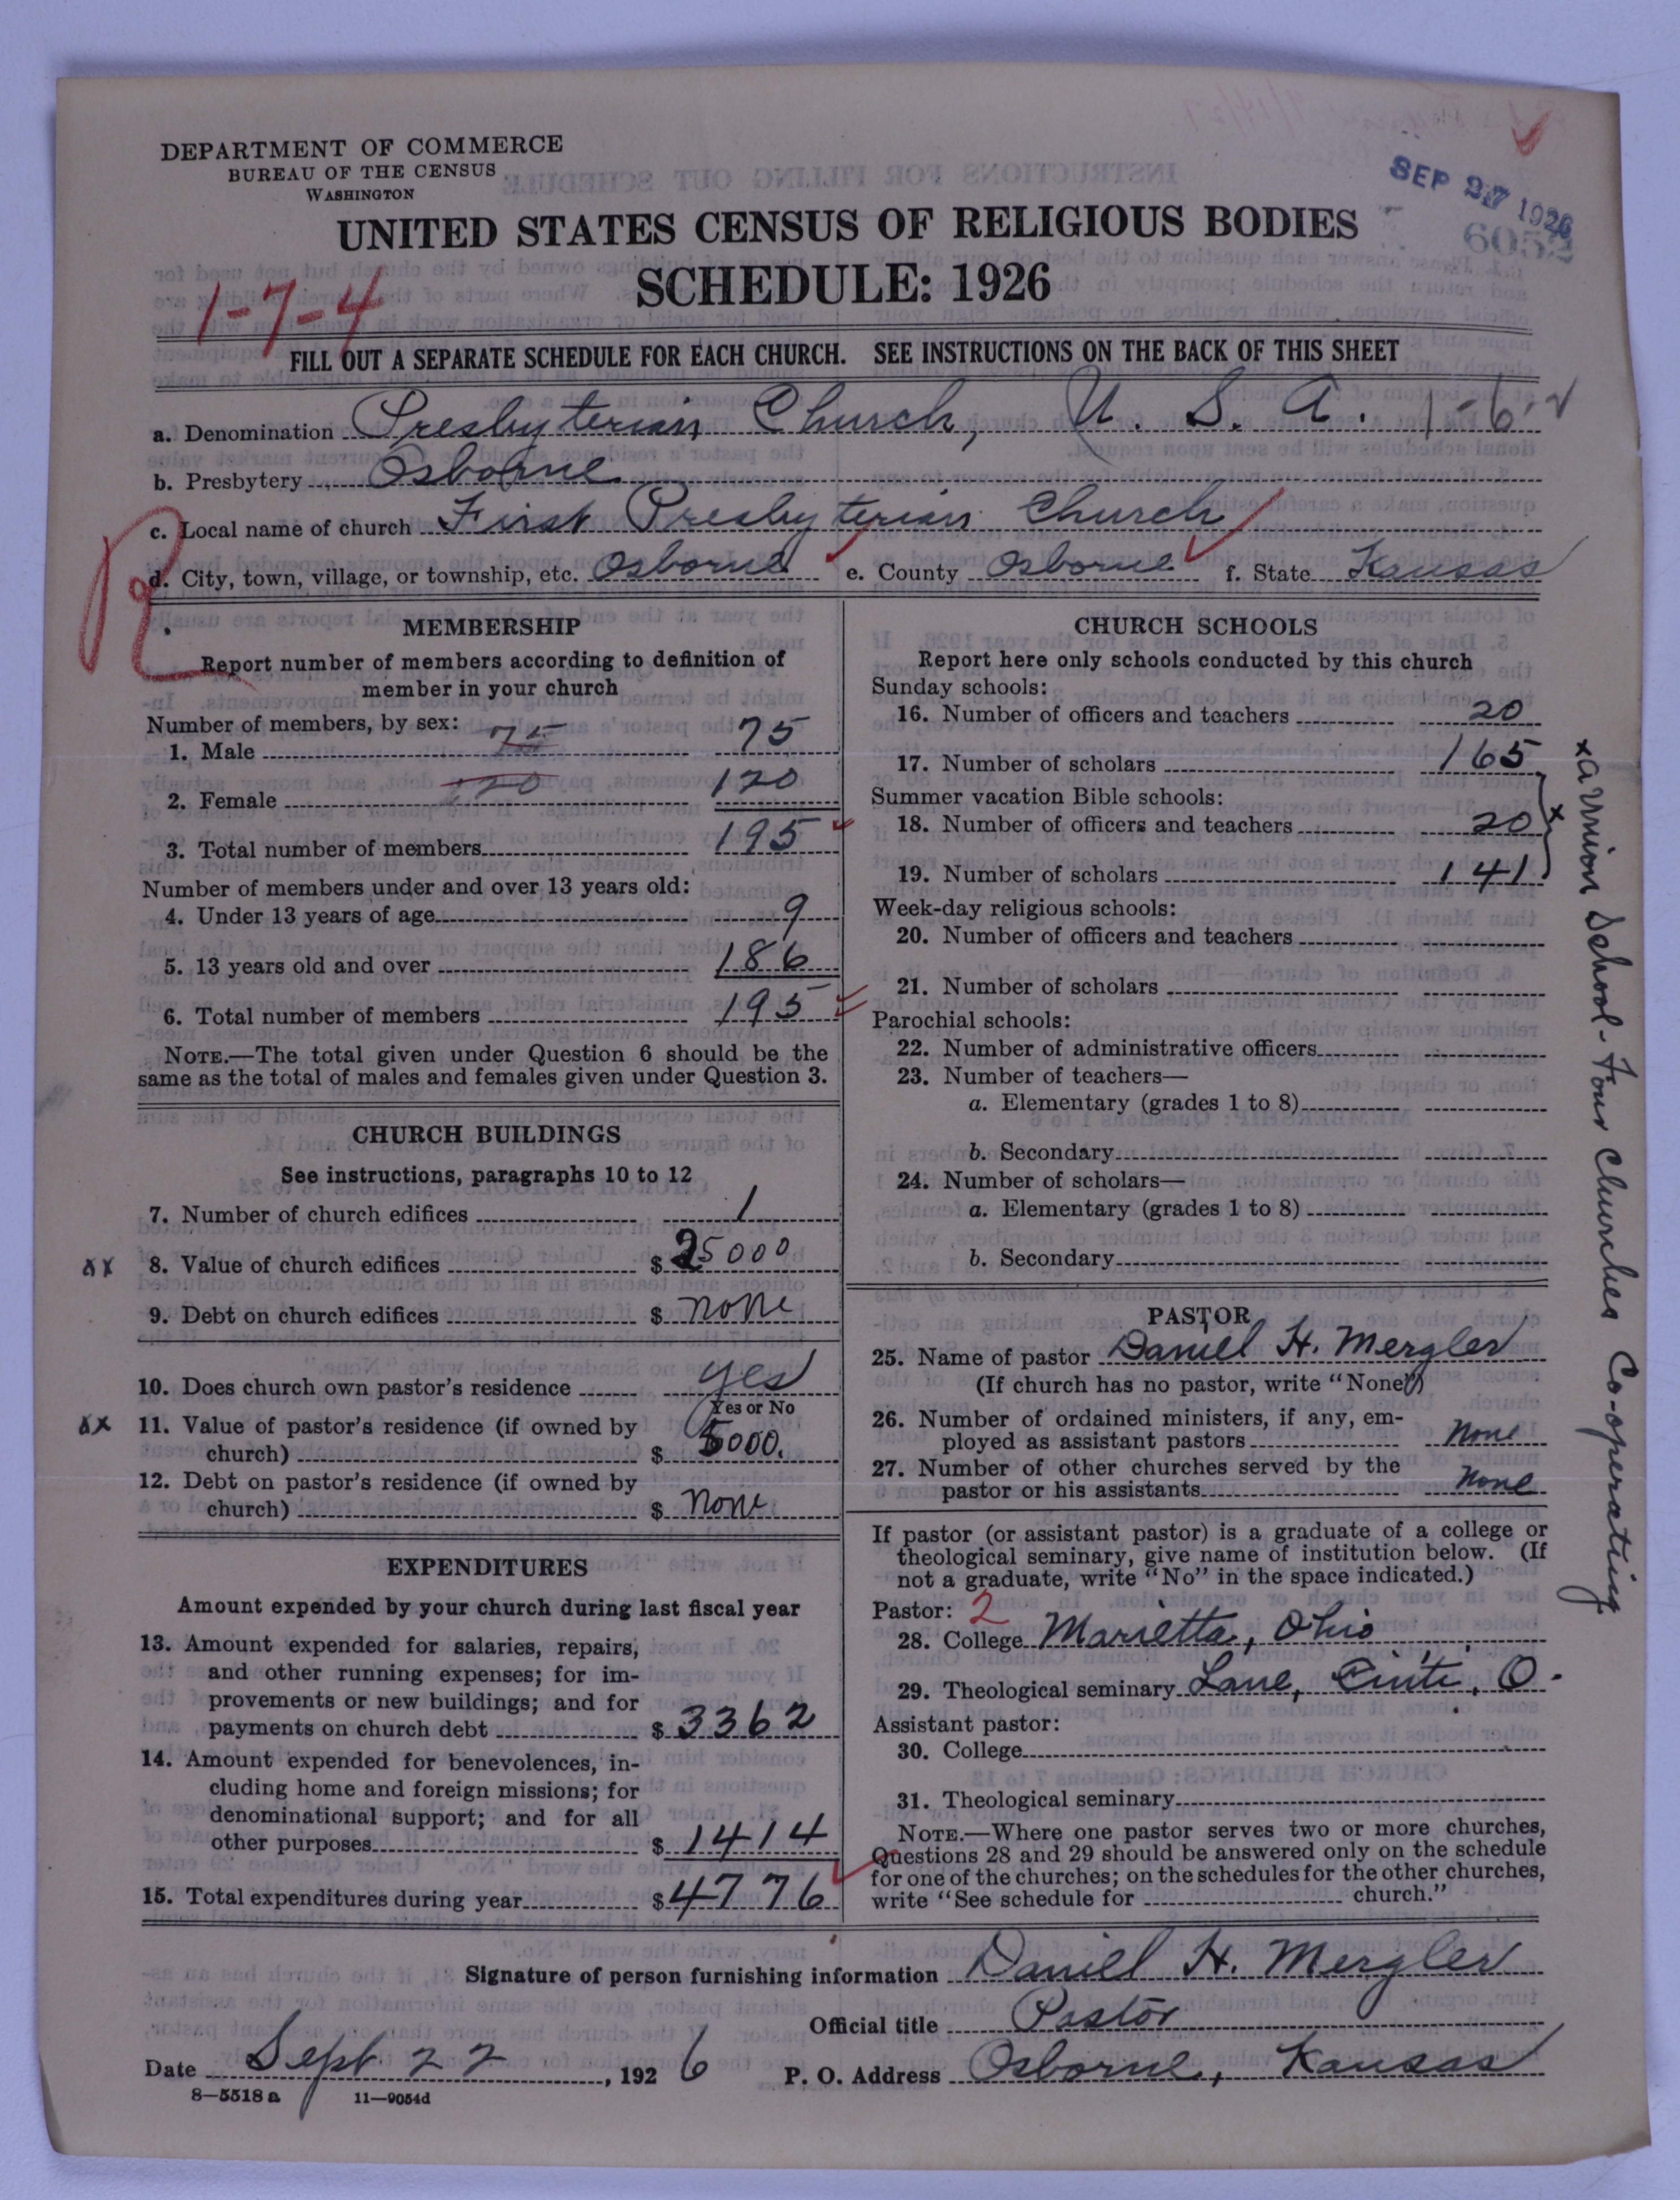 DEPARTMENT OF COMMERCE
BUREAU OF THE CENSUS
WASHINGTON
SEP 27 1926
6052
UNITED STATES CENSUS OF RELIGIOUS BODIES
SCHEDULE: 1926
1-7-4
FILL OUT A SEPARATE SCHEDULE FOR EACH CHURCH. SEE INSTRUCTIONS ON THE BACK OF THIS SHEET
a. Denomination Presbyterian Church, U. S. A. 1-6-2
b. Presbytery Osborne
c. Local name of church First Presbyterian Church
d. City, town, village, or township, etc. Osborne e. County Osborne f. State Kansas
MEMBERSHIP
Report number of members according to definition of
member in your church
Number of members, by sex:
1. Male 75 75
2. Female 120 120
3. Total number of members 195
Number of members under and over 13 years old:
4. Under 13 years of age 9
5. 13 years old and over 186
6. Total number of members 195
NOTE.—The total given under Question 6 should be the
same as the total of males and females given under Question 3.
CHURCH BUILDINGS
See instructions, paragraphs 10 to 12
7. Number of church edifices 1
8. Value of church edifices $ 25000
9. Debt on church edifices $ none
10. Does church own pastor's residence yes
Yes or No
11. Value of pastor's residence (if owned by
church) $ 5000.
12. Debt on pastor's residence (if owned by
church) $ none
EXPENDITURES
Amount expended by your church during last fiscal year
13. Amount expended for salaries, repairs,
and other running expenses; for im-
provements or new buildings; and for
payments on church debt $ 3362
14. Amount expended for benevolences, in-
cluding home and foreign missions; for
denominational support; and for all
other purposes $ 1414
15. Total expenditures during year $ 4776
CHURCH SCHOOLS
Report here only schools conducted by this church
Sunday schools:
16. Number of officers and teachers 20
17. Number of scholars 165
Summer vacation Bible schools:
18. Number of officers and teachers 20
19. Number of scholars 141
x
Week-day religious schools:
20. Number of officers and teachers
21. Number of scholars
Parochial schools:
22. Number of administrative officers
23. Number of teachers—
a. Elementary (grades 1 to 8)
b. Secondary
24. Number of scholars—
a. Elementary (grades 1 to 8)
b. Secondary
x a union School - Four Churches Co-operating
PASTOR
25. Name of pastor Daniel H. Mergler
(If church has no pastor, write "None")
26. Number of ordained ministers, if any, em-
ployed as assistant pastors None
27. Number of other churches served by the
pastor or his assistants None
If pastor (or assistant pastor) is a graduate of a college or
theological seminary, give name of institution below. (If
not a graduate, write "No" in the space indicated.)
Pastor: 2
28. College Marietta, Ohio
29. Theological seminary Lane, Cinti, O.
Assistant pastor:
30. College
31. Theological seminary
NOTE.—Where one pastor serves two or more churches,
Questions 28 and 29 should be answered only on the schedule
for one of the churches; on the schedules for the other churches,
write "See schedule for church."
Signature of person furnishing information Daniel H. Mergler
Official title Pastor
Date Sept 22, 1926 P. O. Address Osborne, Kansas
8—5518 a 11—9054d